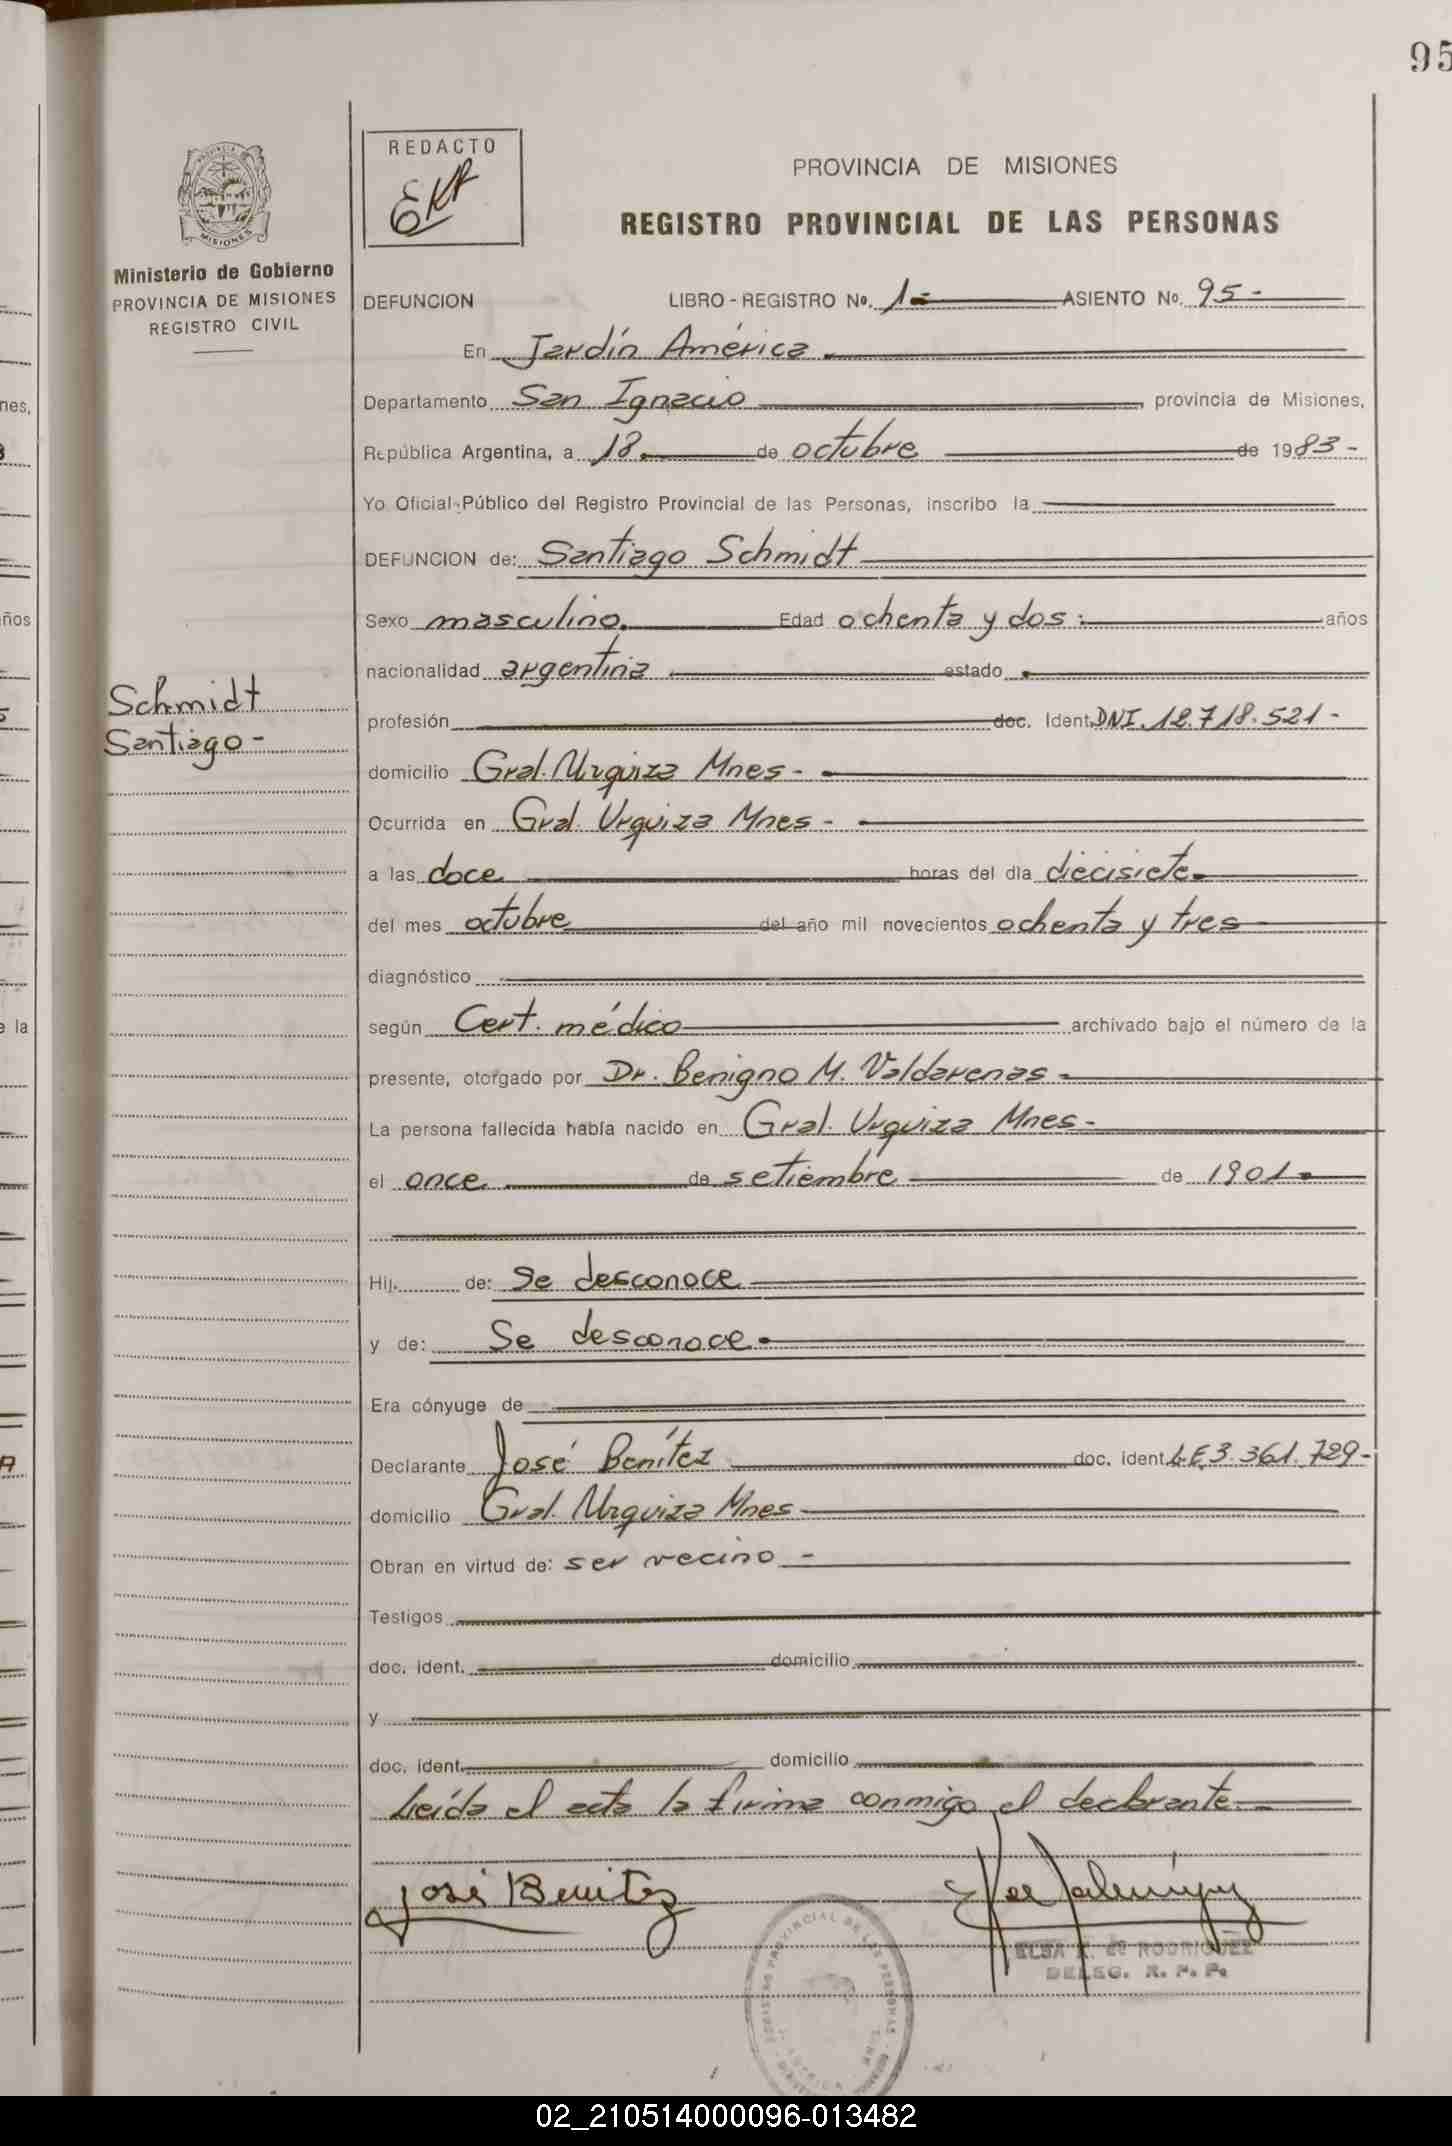 95
REDACTO
EKR
PROVINCIA DE MISIONES
REGISTRO PROVINCIAL DE LAS PERSONAS
PROVINCIA DE
MISIONES
Ministerio de Gobierno
PROVINCIA DE MISIONES
REGISTRO CIVIL
DEFUNCION LIBRO - REGISTRO No. 1- ASIENTO No. 95-
En Jardín América
Departamento San Ignacio, provincia de Misiones,
República Argentina, a 18 de octubre de 1983-
Yo Oficial Público del Registro Provincial de las Personas, inscribo la
DEFUNCION de: Santiago Schmidt
Sexo masculino. Edad ochenta y dos: años
nacionalidad argentina estado
Schmidt
Santiago-
profesión doc. Ident. DNI. 12.718.521-
domicilio Gral. Urquiza Mnes-
Ocurrida en Gral. Urquiza Mnes-
a las doce horas del día diecisiete
del mes octubre del año mil novecientos ochenta y tres
diagnóstico
según Cert. médico archivado bajo el número de la
presente, otorgado por Dr. Benigno M. Valdarenas-
La persona fallecida había nacido en Gral. Urquiza Mnes-
el once de setiembre de 1901
Hij. de: Se desconoce
y de: Se desconoce
Era cónyuge de
Declarante José Benítez doc. ident. L.E. 3.361.729-
domicilio Gral. Urquiza Mnes
Obran en virtud de: ser vecino -
Testigos
doc. ident. domicilio
y
doc. ident. domicilio
Leída el acta la firma conmigo el declarante.
José Benitez
RODRIGUEZ
DELEG. R. P. P.
REGISTRO PROVINCIAL DE LAS PERSONAS
02_210514000096-013482